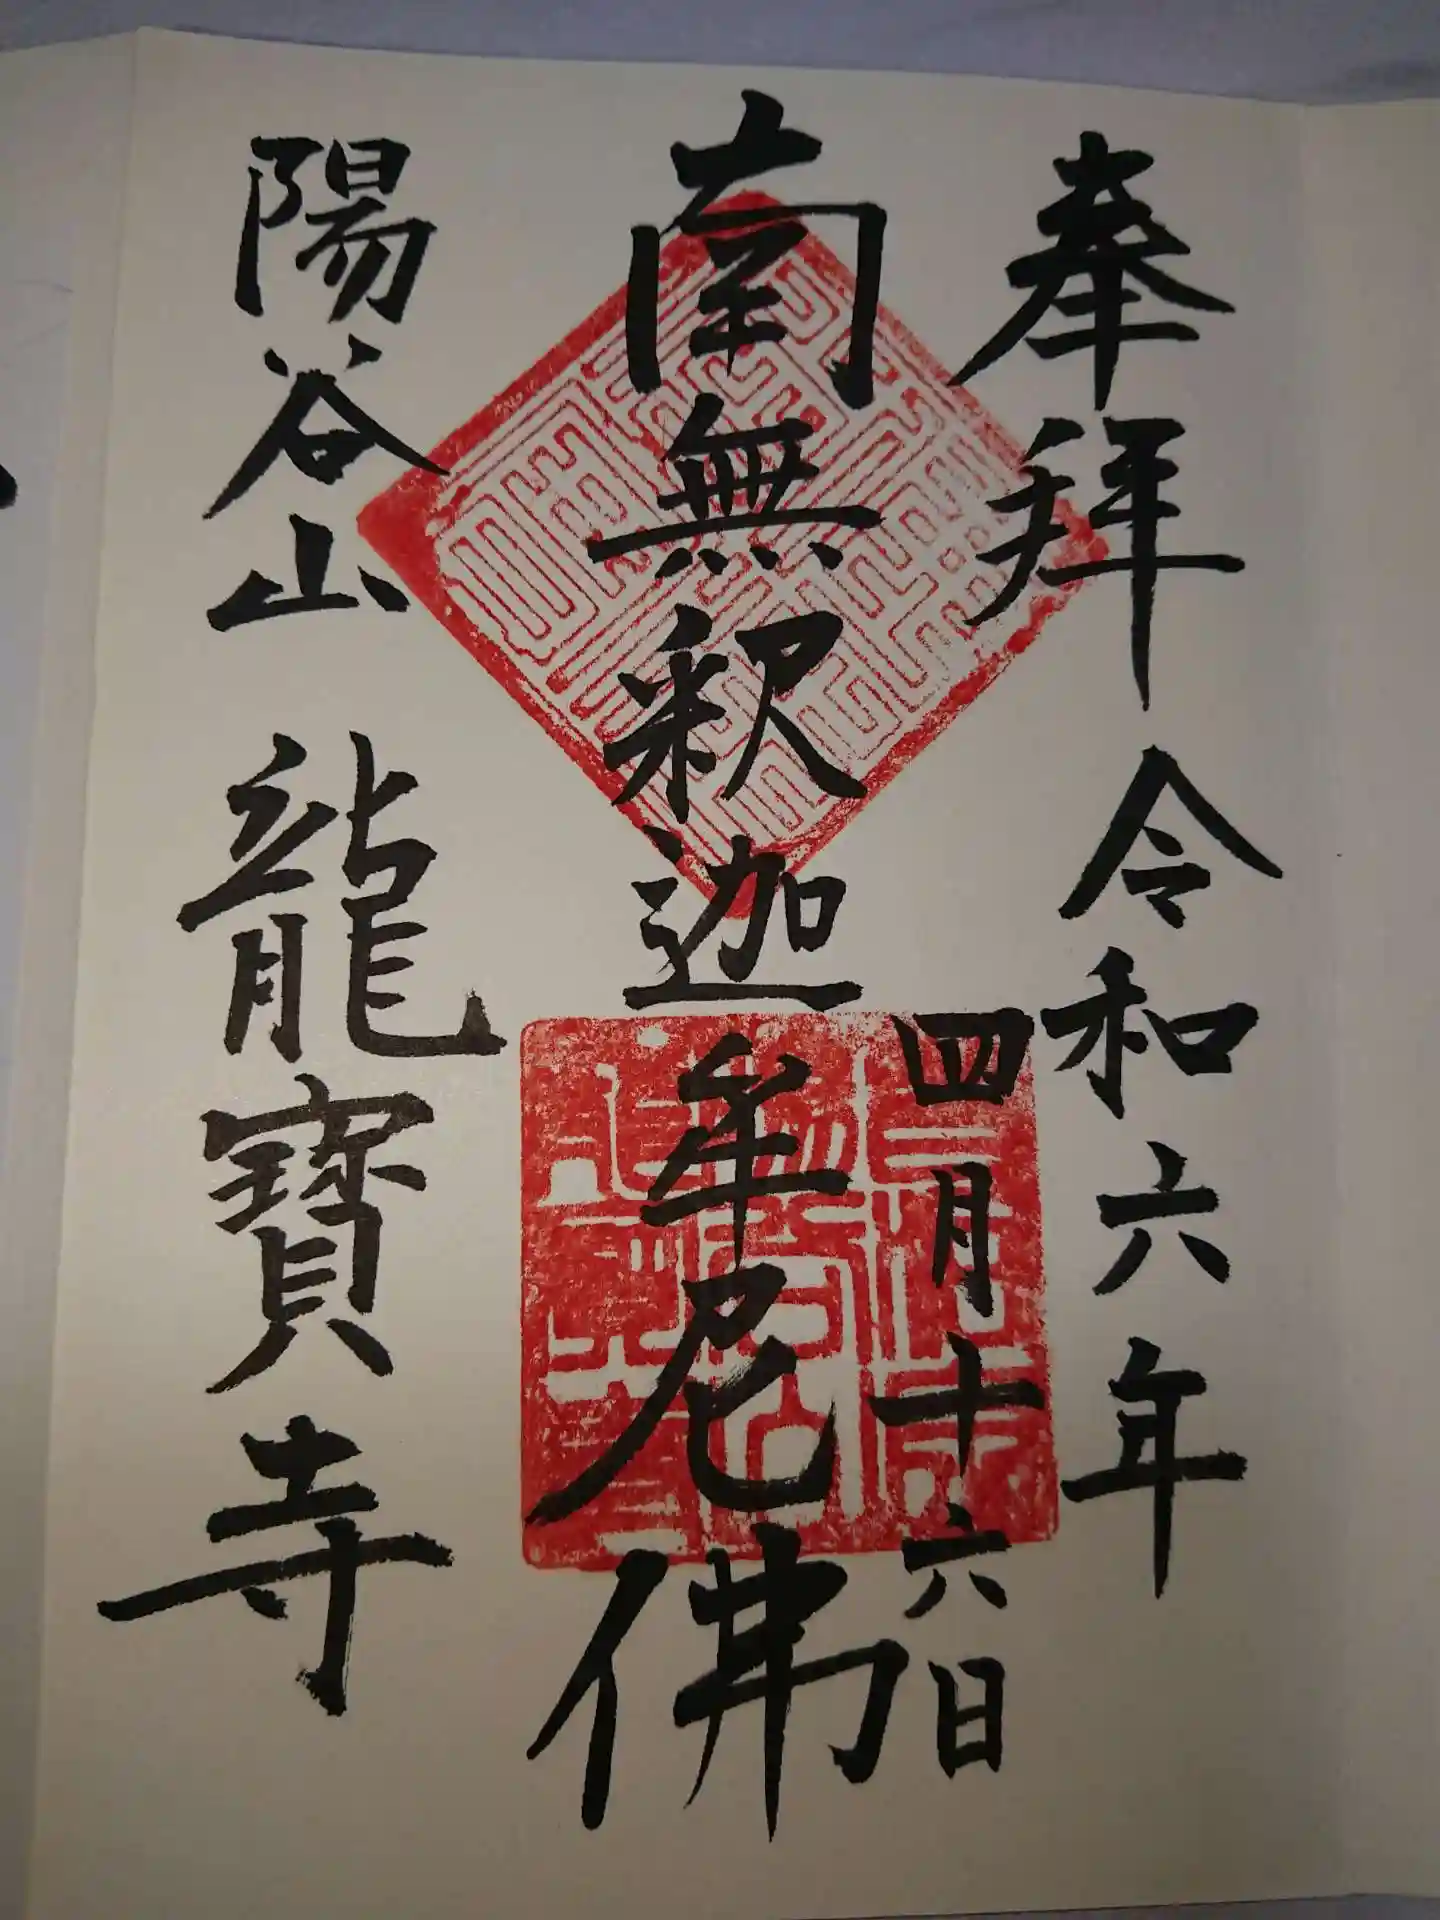 奉拜 令和六年
四月十六日
南無釈迦牟尼佛
陽谷山 龍寳寺